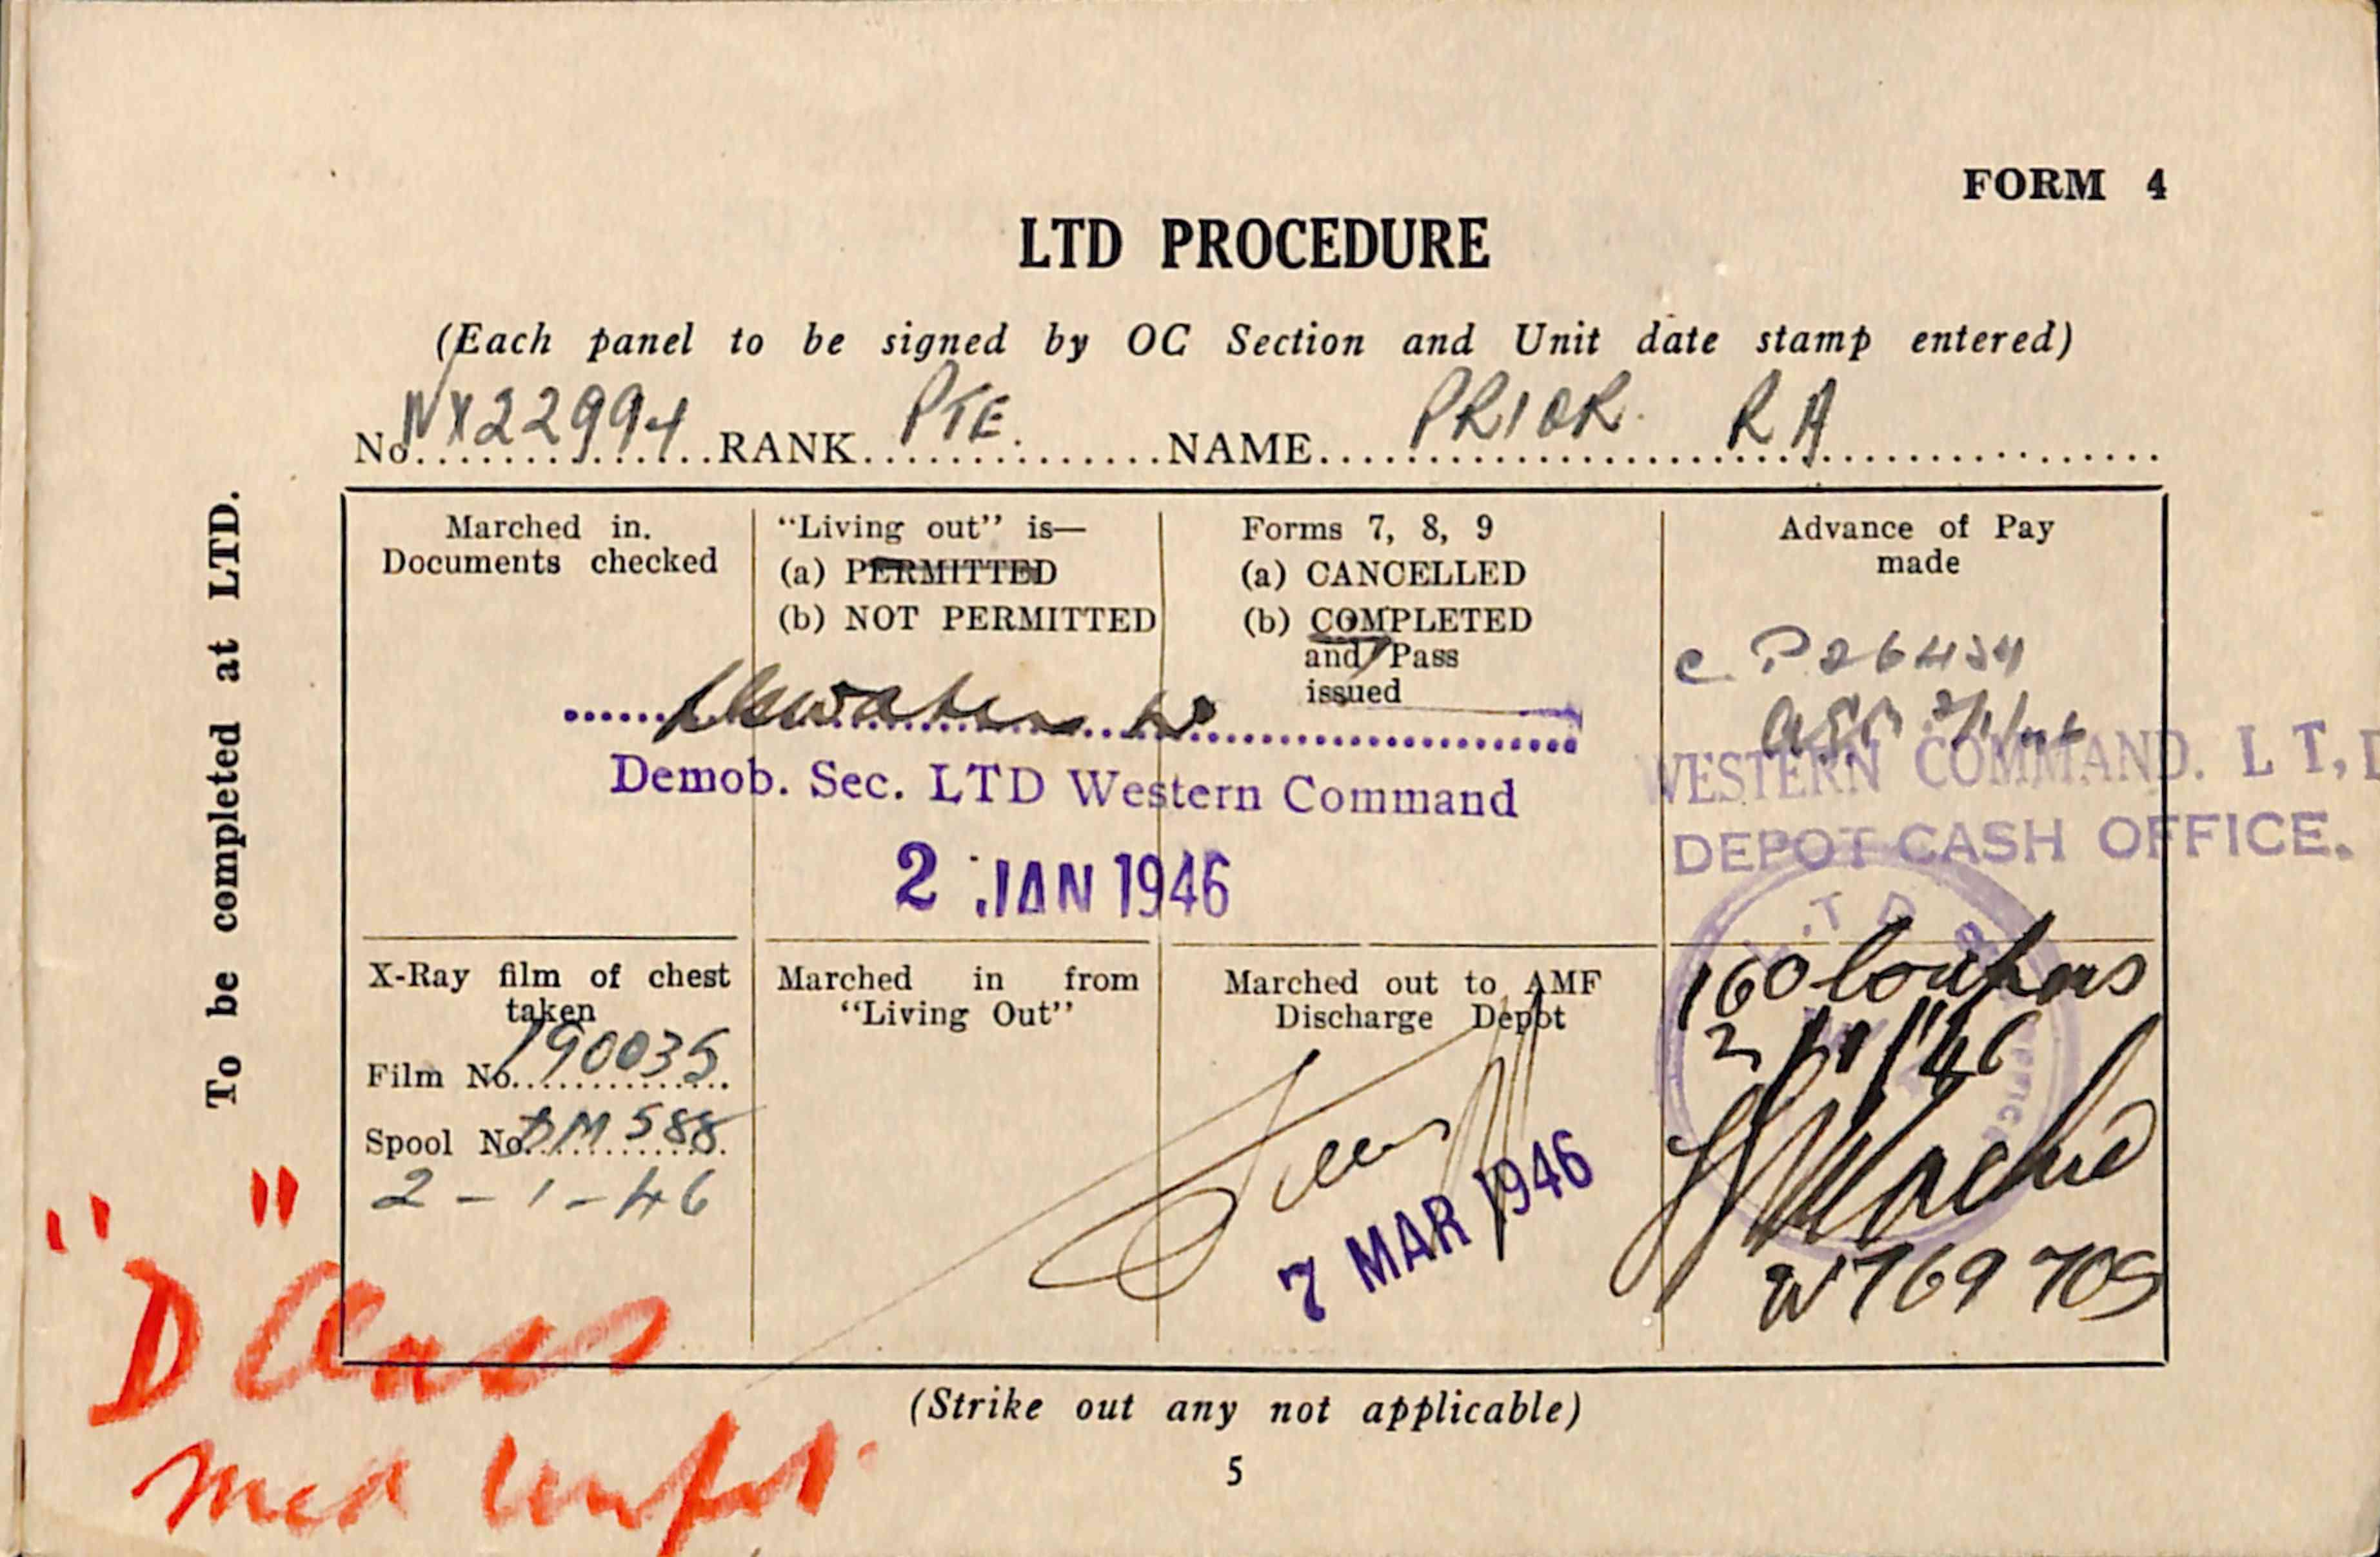 FORM 4
LTD PROCEDURE
(Each panel to be signed by OC Section and Unit date stamp entered)
No. WX22994 RANK PTE. NAME PRIOR R A
To be completed at LTD.
Marched in.
Documents checked
"Living out" is—
(a) PERMITTED
(b) NOT PERMITTED
Forms 7, 8, 9
(a) CANCELLED
(b) COMPLETED
and Pass
issued
Advance of Pay
made
Demob. Sec. LTD Western Command
2 JAN 1946
WESTERN COMMAND. L T, D
DEPOT CASH OFFICE.
X-Ray film of chest
taken
Film No. 190035
Spool No. DM 588
2-1-46
Marched in from
"Living Out"
Marched out to AMF
Discharge Depot
7 MAR 1946
160 Coupons
2/1/46
W769705
"D" Class
med unfit.
(Strike out any not applicable)
5